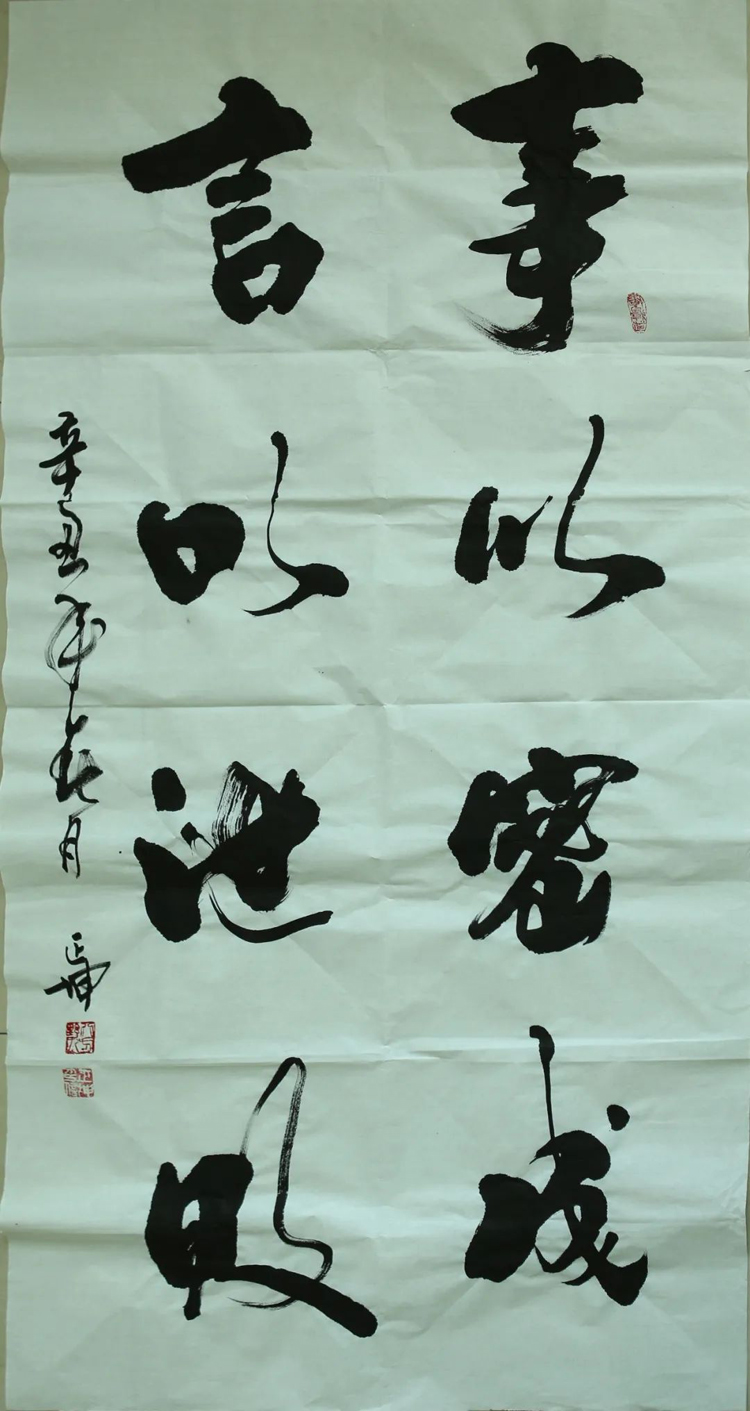 事以密成
言以泄败
辛丑年月 正坤